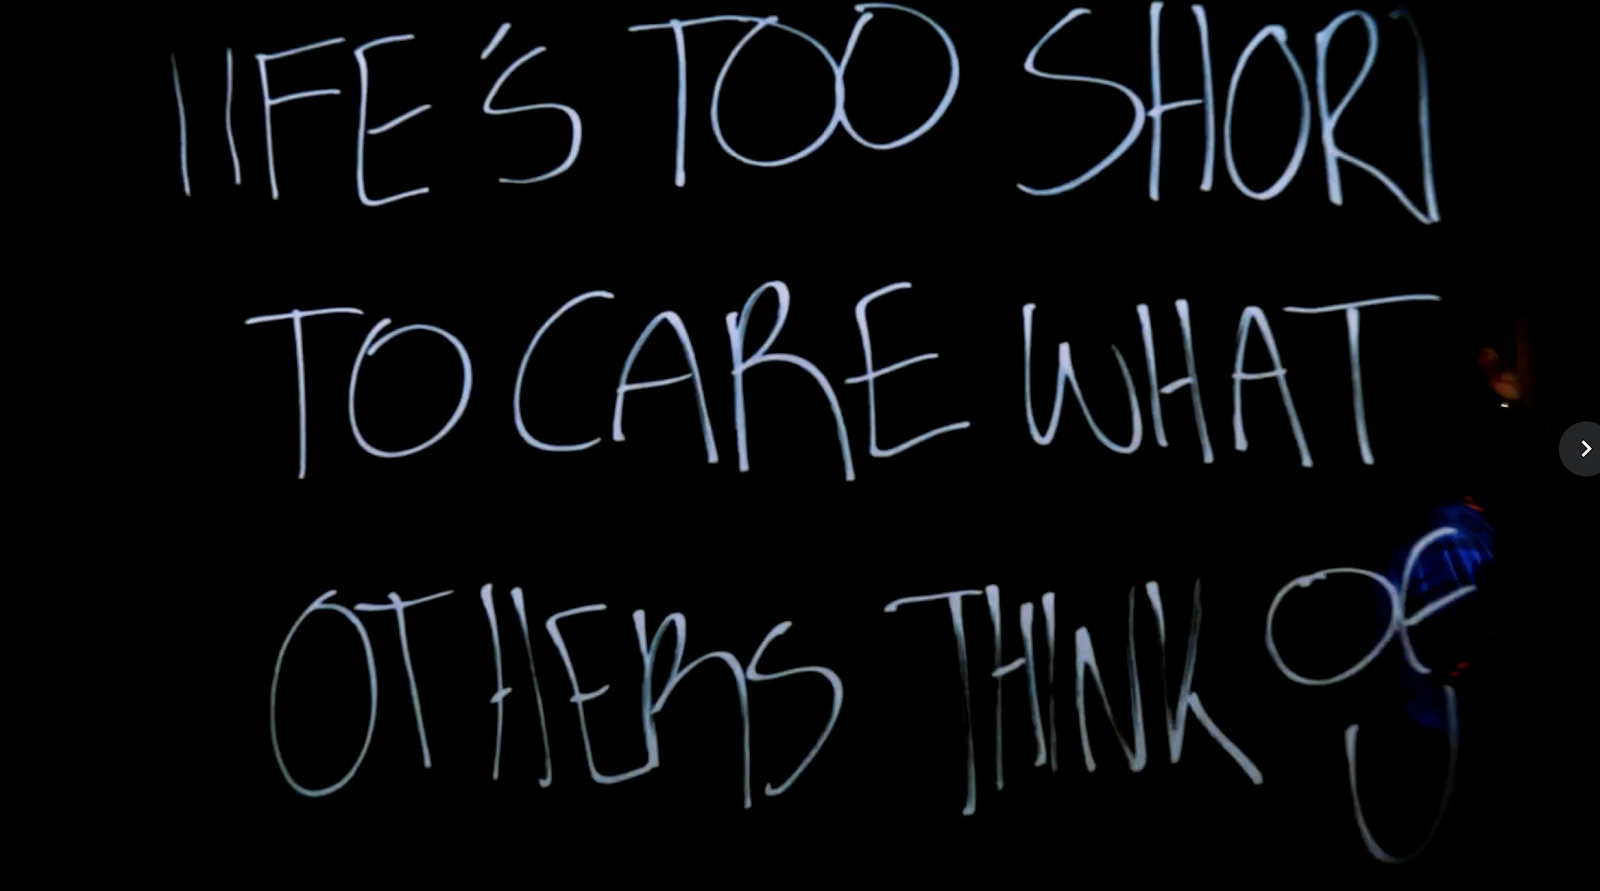 LIFE'S TOO SHORT
TO CARE WHAT
OTHERS THINK OF
U